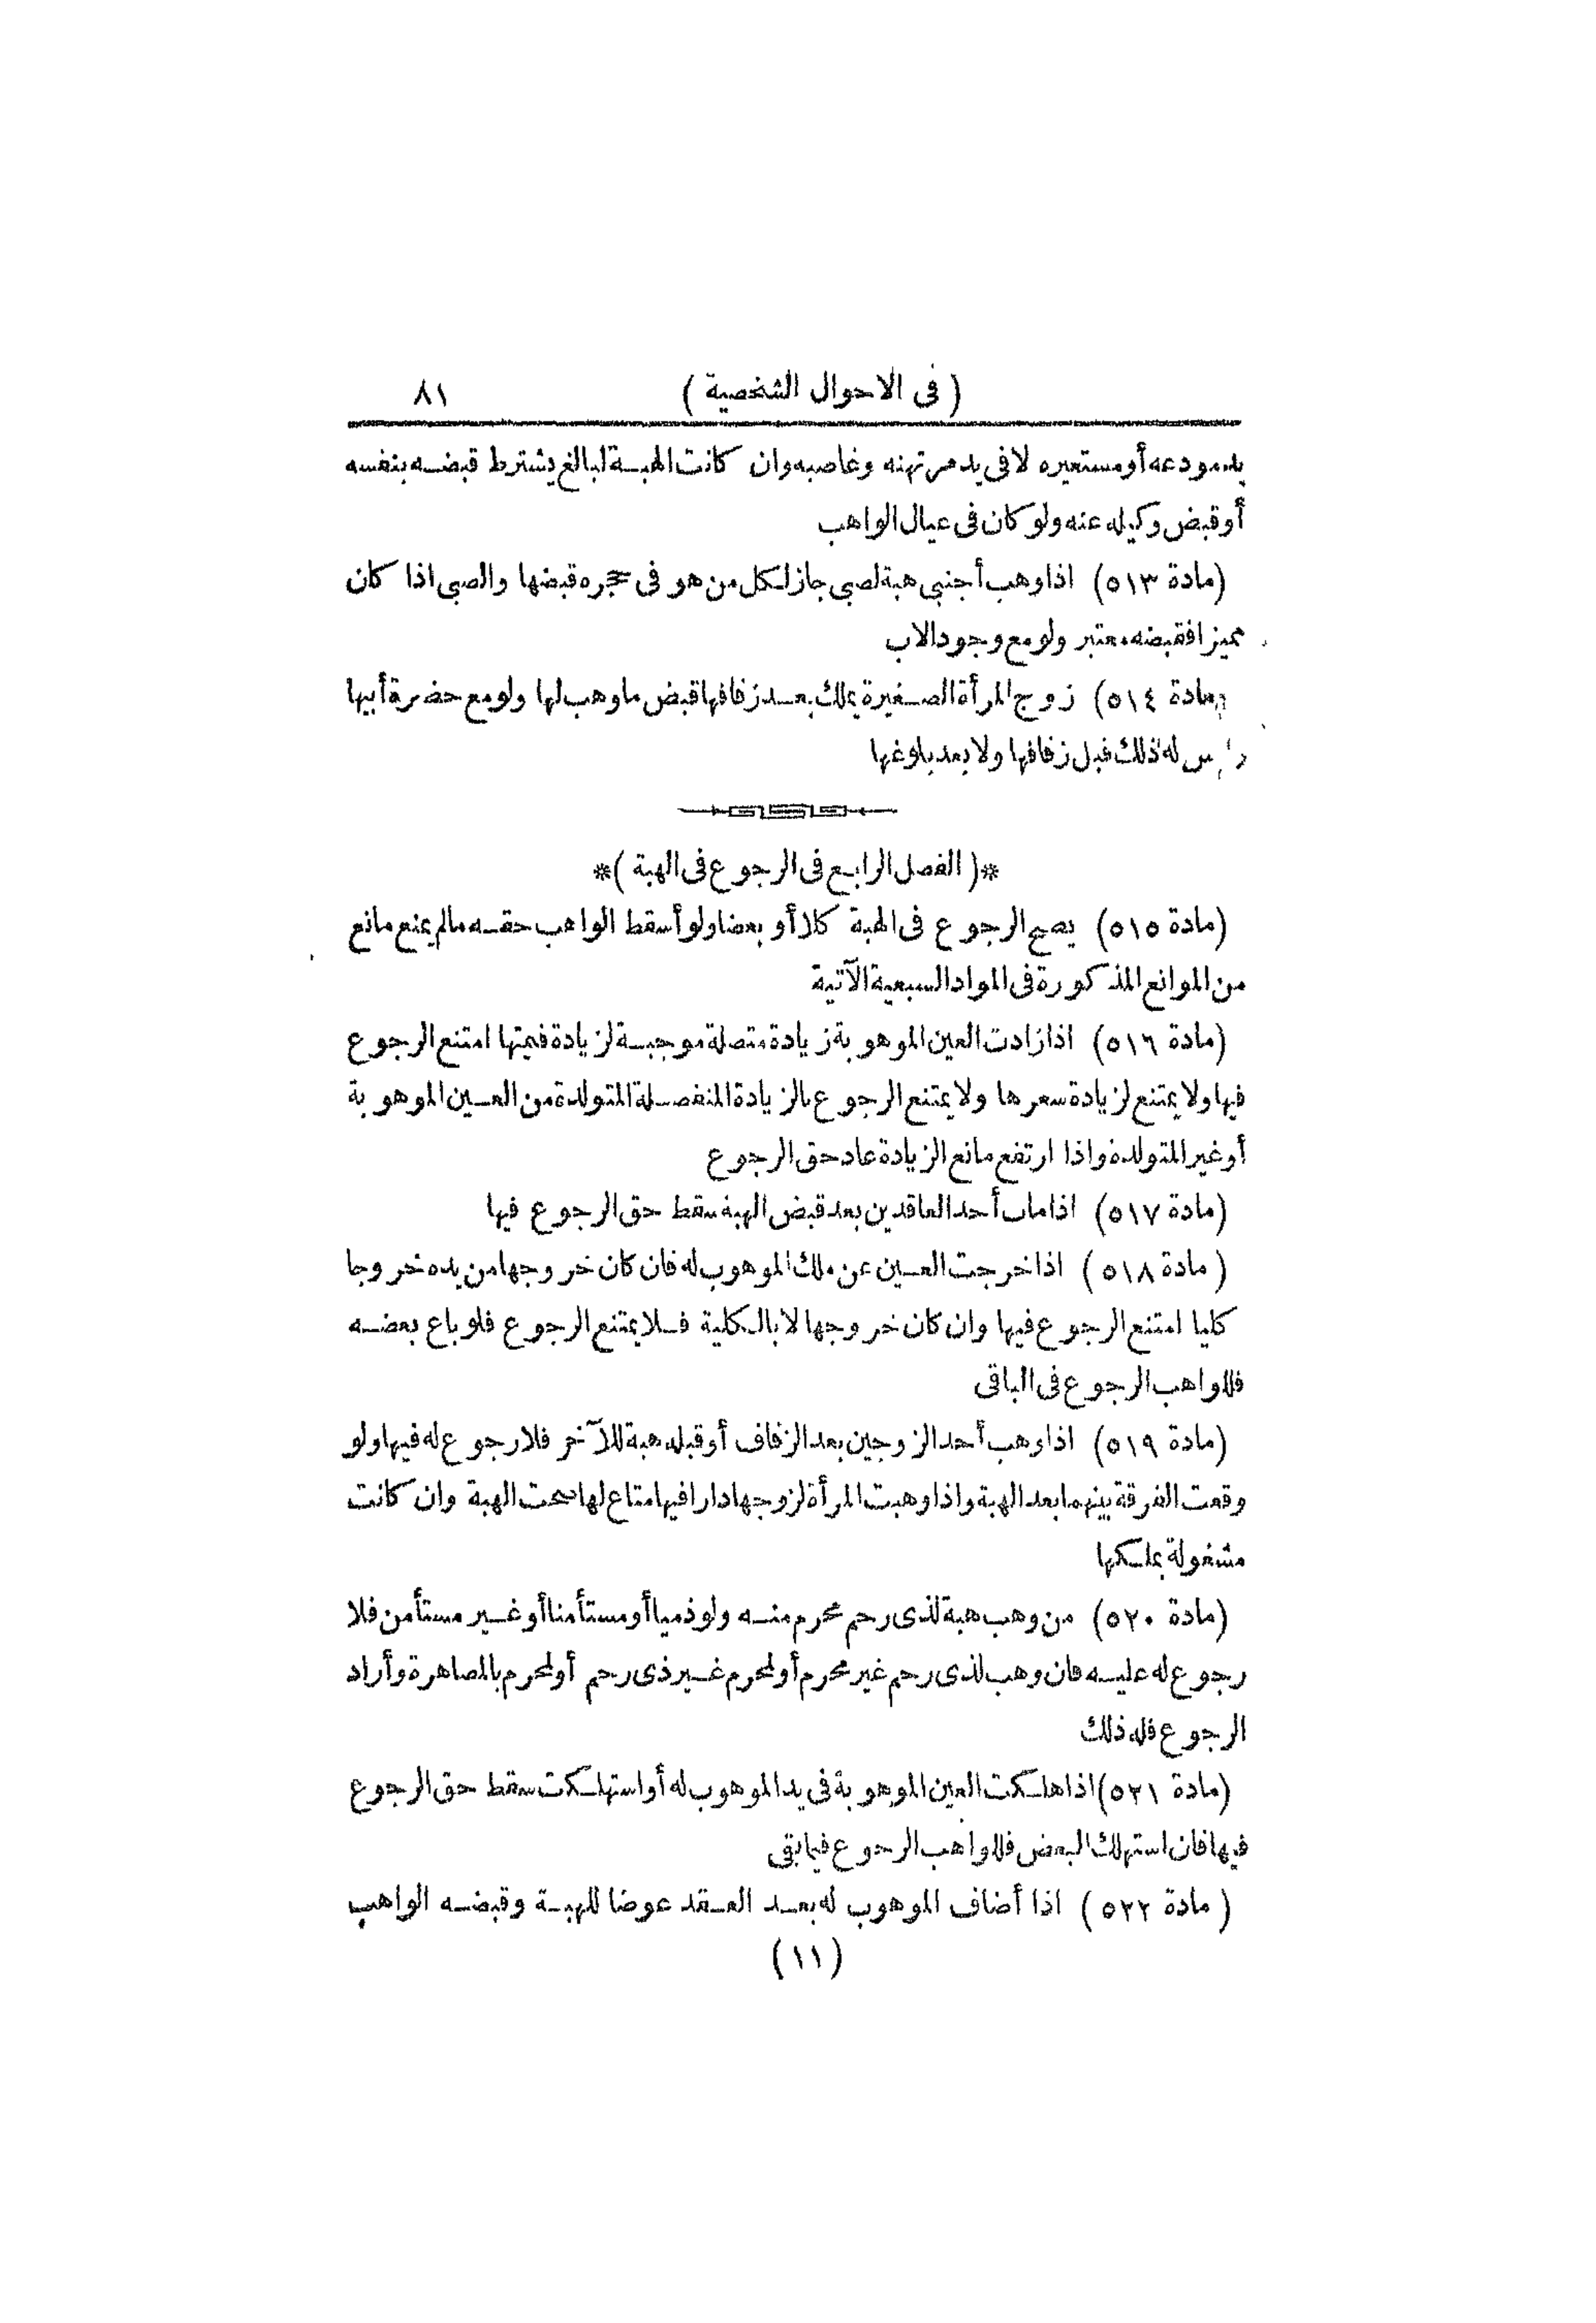 ( فى الاحوال الشخصية ) ٨١
يد مودعه أو مستعيره لا فى يد مرتهنه وغاصبه وان كانت الهبة لبالغ يشترط قبضه بنفسه
أو قبض وكيله عنه ولو كان فى عيال الواهب
(مادة ٥١٣) اذا وهب أجنبي هبة لصبي جاز لكل من هو فى حجره قبضها والصبي اذا كان
مميزا فقبضه معتبر ولو مع وجود الاب
(مادة ٥١٤) زوج المرأة الصغيرة يملك بعد زفافها قبض ما وهب لها ولو مع حضرة أبيها
وليس له ذلك قبل زفافها ولا بعد بلوغها
*( الفصل الرابع فى الرجوع فى الهبة )*
(مادة ٥١٥) يصح الرجوع فى الهبة كلا أو بعضا ولو أسقط الواهب حقه مالم يمنع مانع
من الموانع المذكورة فى المواد السبعية الآتية
(مادة ٥١٦) اذا زادت العين الموهوبة زيادة متصلة موجبة لزيادة قيمتها امتنع الرجوع
فيها ولا يمتنع لزيادة سعرها ولا يمتنع الرجوع بالزيادة المنفصلة المتولدة من العين الموهوبة
أو غير المتولدة واذا ارتفع مانع الزيادة عاد حق الرجوع
(مادة ٥١٧) اذا مات أحد العاقدين بعد قبض الهبة سقط حق الرجوع فيها
(مادة ٥١٨) اذا خرجت العين عن ملك الموهوب له فان كان خروجها من يده خروجا
كليا امتنع الرجوع فيها وان كان خروجها لا بالكلية فلا يمتنع الرجوع فلو باع بعضه
فللواهب الرجوع فى الباقى
(مادة ٥١٩) اذا وهب أحد الزوجين بعد الزفاف أو قبله هبة للآخر فلا رجوع له فيها ولو
وقعت الفرقة بينهما بعد الهبة واذا وهبت المرأة لزوجها دارا فيها متاع لها صحت الهبة وان كانت
مشغولة بملكها
(مادة ٥٢٠) من وهب هبة لذى رحم محرم منه ولو ذميا أو مستأمنا أو غير مستأمن فلا
رجوع له عليه فان وهب لذى رحم غير محرم أو لمحرم غير ذى رحم أو لمحرم بالمصاهرة وأراد
الرجوع فله ذلك
(مادة ٥٢١) اذا هلكت العين الموهوبة فى يد الموهوب له أو استهلكت سقط حق الرجوع
فيها فان استهلك البعض فللواهب الرجوع فيما بقى
(مادة ٥٢٢) اذا أضاف الموهوب له بعد العقد عوضا للهبة وقبضه الواهب
(١١)